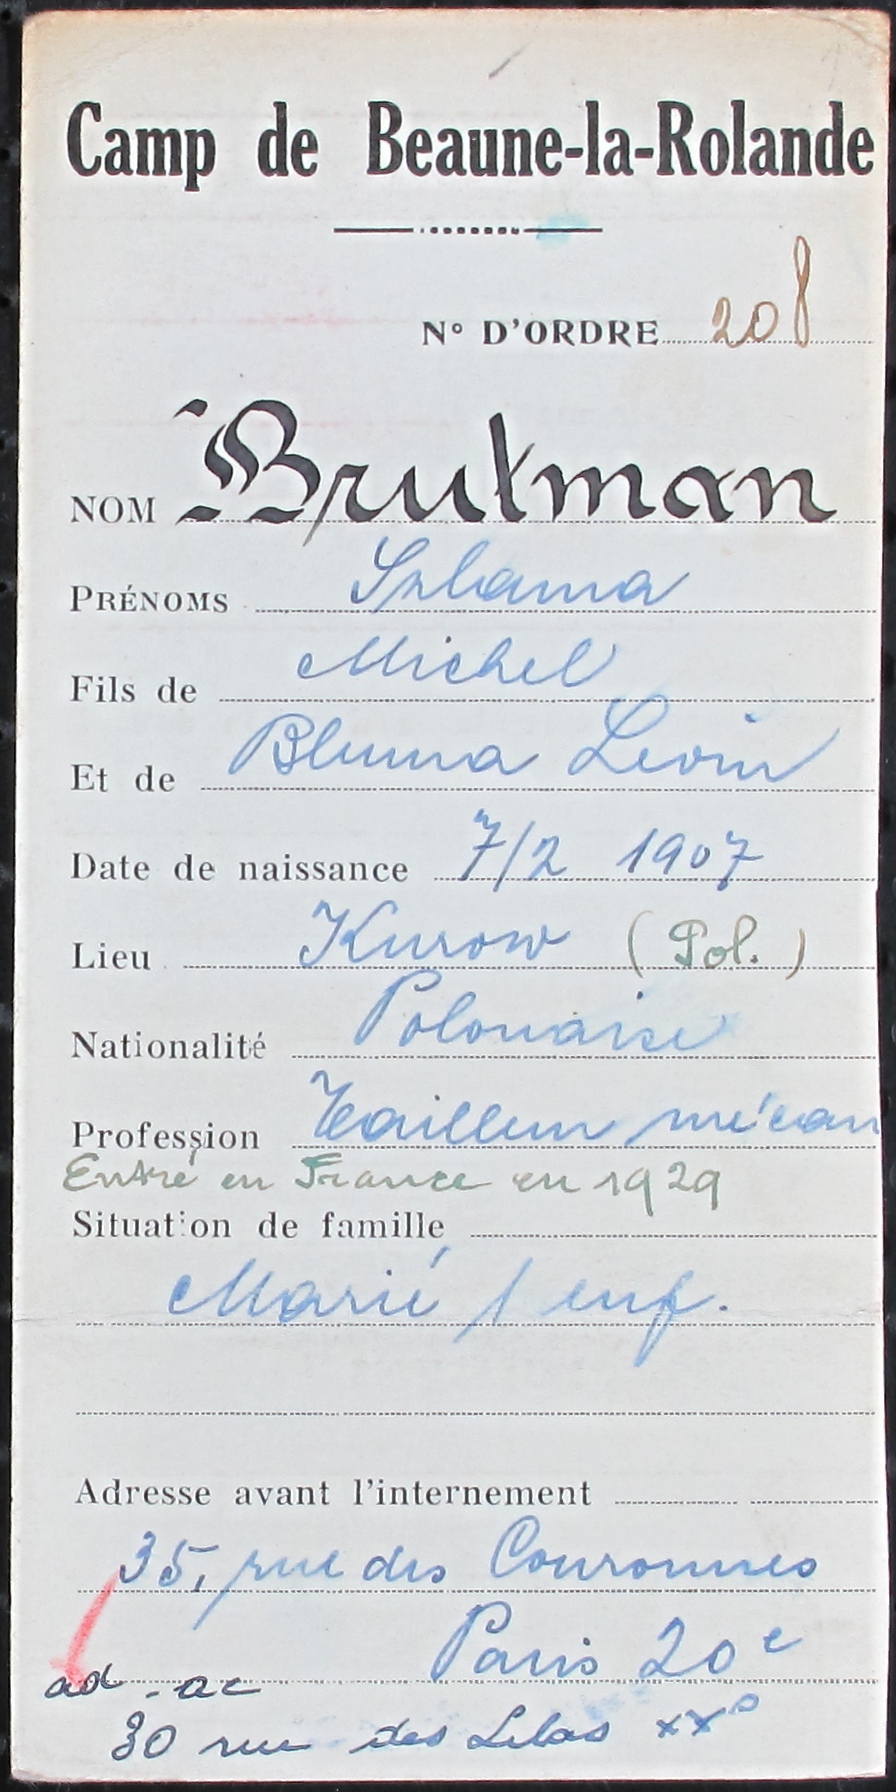 Camp de Beaune-la-Rolande
N° D'ORDRE 208
NOM Brutman
PRÉNOMS Szlama
Fils de Michel
Et de Bluma Levin
Date de naissance 7/2 1907
Lieu Kurow (Pol.)
Nationalité Polonaise
Profession Tailleur mécan
Entré en France en 1929
Situation de famille
Marié 1 enf.
Adresse avant l'internement
35, rue des Couronnes
Paris 20e
ad - ac
30 rue des Lilas XXe